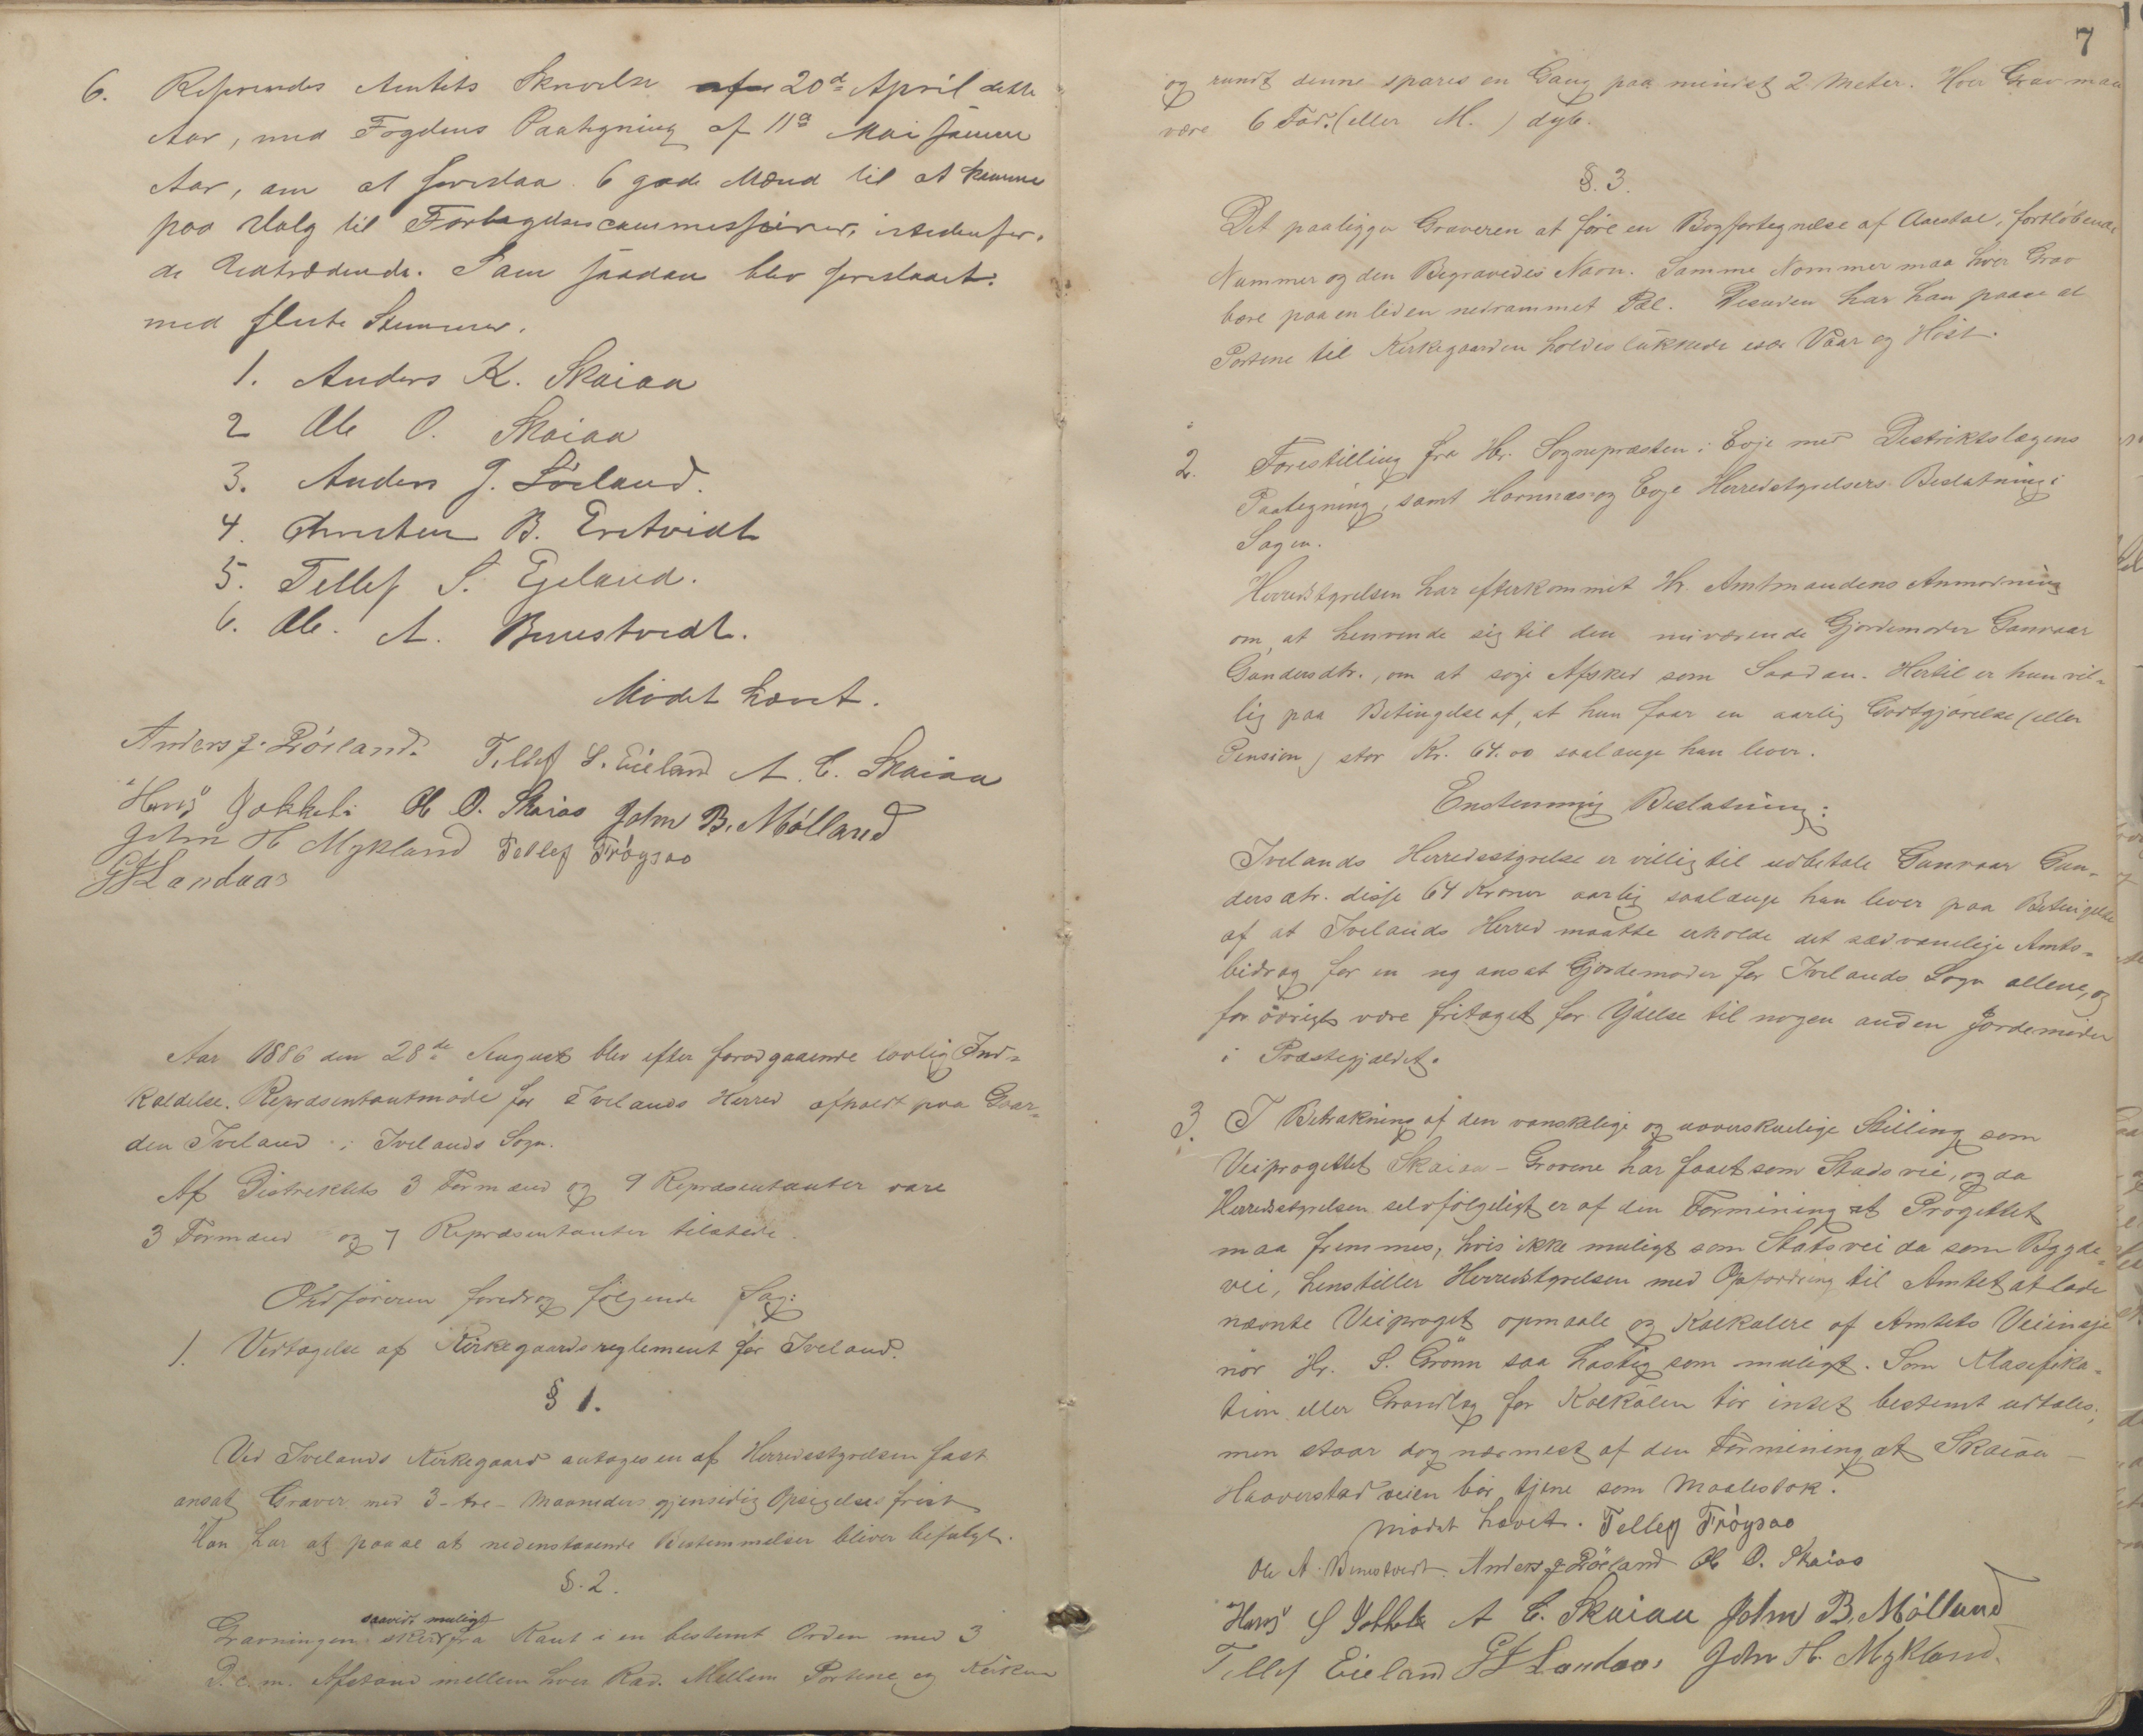 6. Refereredes Amtets Skrivelse af 20d April dette
Aar, med Fogdens Paategning af 11a Mai samme
Aar, om at foreslaa 6 gode Mænd til at komme
paa Valg til Forligelsescommissærer, istedenfor
de Udtrædende. Som saadan blev foreslaaet
med fleste Stemmer.
1. Anders K. Skaiaa
2 Ole O. Skaiaa
3. Anders J. Röiland.
4. Christen B. Eretveidt
5. Tellef S. Eieland.
6. Ole A. Bennestvedt.
Mödet hævet.
Anders J. Röiland. Tellef S. Eieland A. C. Skaiaa
Hans Jokkela Ole O. Skaiaa John B. Mölland
John H Mykland Tellef Fröysaa
GJ Landaas
Aar 1886 den 28de August blev efter forudgaaende lovlig Ind-
kaldelse. Repræsentantmöde for Ivelands Herred afholdt paa Gaar-
den Iveland i Ivelands Sogn.
Af Distriktets 3 Formænd og 9 Repræsentanter vare
3 Formænd og 7 Repræsentanter tilstede.
Ordföreren foredrog fölgende Sag:
1. Vedtagelse af Kirkegaardsreglement for Iveland.
§ 1.
Ved Ivelands Kirkegaard antages en af Herredsstyrelsen fast
ansat Graver med 3 - tre - Maaneders gjensidig Opsigelsesfrist
Han har at paase at nedenstaaende Bestemmelser bliver befulgt.
§. 2.
saavidt muligt
Gravningen skeer fra Kant i en bestemt Orden med 3
D.c.m. Afstand mellem hver Rad. Mellem Portene og Kirken
7
og rundt denne spares en Gang paa mindst 2 Meter. Hver Grav maa
være 6 Fod. (eller M. ) dyb.
§. 3.
Det paaligger Graveren at före en Bogfortegnelse af Aarstal, fortlöbende
Nummer og den Begravedes Navn. Samme Nommer maa hver Grav
bære paa en liden nedrammet Pæl. Desuden har han paase at
Portene til Kirkegaarden holdes lukkede især Vaar og Höst.
2. Forestilling fra Hr. Sognepræsten i Evje med Distriktslægens
Paategning, samt Hornnæs og Evje Herredstyrelsers Beslutning i
Sagen.
Herredstyrelsen har efterkommet Hr. Amtmandens Anmodning
om at henvende sig til den nuværende Gjordemoder Gunvaar
Gundersdtr., om at söge Afsked som Saadan. Hertil er hun vil-
lig paa Betingelse af, at hun faar en aarlig Godtgjörelse (eller
Pension) stor Kr. 64.00 saalænge hun lever.
Enstemmig Beslutning:
Ivelands Herredsstyrelse er villig til udbetale Gunvaar Gun-
dersdtr. disse 64 Kroner aarlig saalænge hun lever paa Betingelse
af at Ivelands Herred maatte erholde det sædvanelige Amts-
bidrag for en ny ansat Gjordemoder for Ivelands Sogn allene, og
for övrigt være fritaget for Ydelse til nogen anden Jordemoder
i Præstegjældet.
3. I Betrakning af den vanskelige og uoverskuelige Stilling som
Veiprogettet Skaiaa - Grovene har faaet som Stadsvei, og da
Herredsstyrelsen selvfölgeligt er af den Formening at Progettet
maa fremmes, hvis ikke muligt som Statsvei da som Bygde-
vei, henstiller Herredstyrelsen med Opfordring til Amtet at lade
nævnte Veiproget opmaale og Kalkulere af Amtets Veiinsje
nör Hr. S. Grönn saa hastig som muligt. Som Klasefika-
tion eller Grundlag for Kalkülen tör intet bestemt udtales,
men staar dog nærmest af den Formening at Skaiaa -
Haaverstadveien bör tjene som Maalestok.
Mödet hævet. Tellef Fröysaa
Ole A. Bennestvedt. Anders J Röiland Ole O. Skaiaa
Hans S Jokkela A C. Skaiaa John B. Mölland
Tellef Eieland GJ Landaas John H. Mykland.